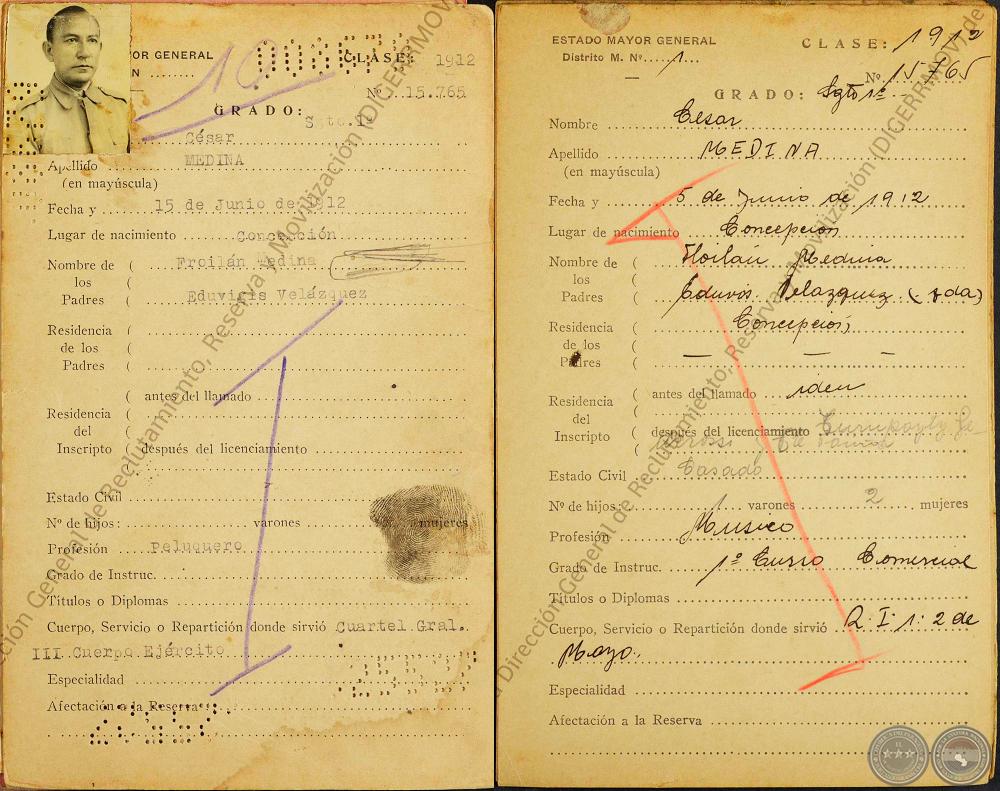 YOR GENERAL
N ........
CLASE: 1912
Nº 15.765
GRADO: Sgto.1º
César
Apellido MEDINA
(en mayúscula)
Fecha y 15 de Junio de 1912
Lugar de nacimiento Concepción
Nombre de ( Froilán Medina
los (
Padres ( Eduvigis Velázquez
Residencia (
de los (
Padres (
( antes del llamado
Residencia (
del (
Inscripto ( después del licenciamiento
(
Estado Civil
Nº de hijos: varones mujeres
Profesión Peluquero
Grado de Instruc.
Títulos o Diplomas
Cuerpo, Servicio o Repartición donde sirvió Cuartel Gral.
III Cuerpo Ejército
Especialidad
Afectación a la Reserva
Dirección General de Reclutamiento, Reserva y Movilización (DIGERRMOVI)
ESTADO MAYOR GENERAL
Distrito M. Nº 1
CLASE: 1912
Nº 15765
GRADO: Sgto 1º
Nombre César
Apellido MEDINA
(en mayúscula)
Fecha y 5 de Junio de 1912
Lugar de nacimiento Concepción
Nombre de ( Froilán Medina
los (
Padres ( Eduvis Velazquez (vda)
Residencia ( Concepción
de los (
Padres ( — — -
( antes del llamado iden
Residencia (
del (
Inscripto ( después del licenciamiento
Estado Civil Casado
Nº de hijos: 1 varones 2 mujeres
Profesión Musico
Grado de Instruc. 1º Curso Comercial
Títulos o Diplomas
Cuerpo, Servicio o Repartición donde sirvió R I 1: 2 de
Mayo.
Especialidad
Afectación a la Reserva
Dirección General de Reclutamiento, Reserva y Movilización (DIGERRMOVI)